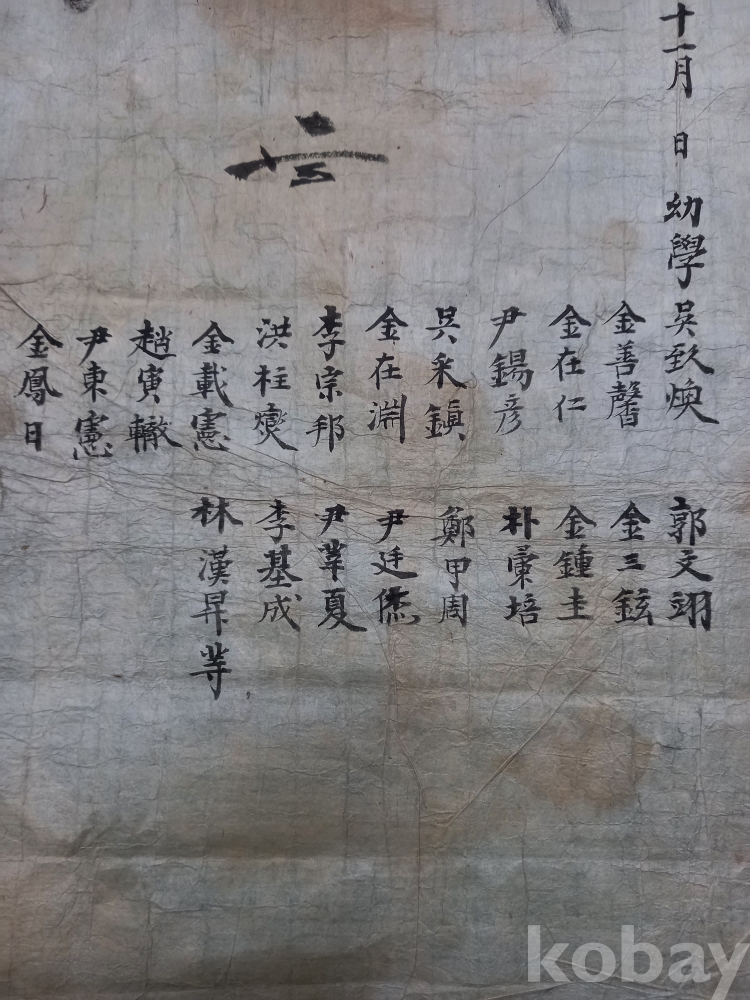 十一月 日 幼學 吳致煥 郭文翊
金善馨 金三鉉
金在仁 金鍾圭
尹錫彦 朴彙培
吳采鎭 鄭甲周
金在淵 尹廷儒
李宗邦 尹莘夏
洪柱燮 李基成
金載憲 林漢昇 等
趙寅轍
尹東憲
金鳳日
kobay